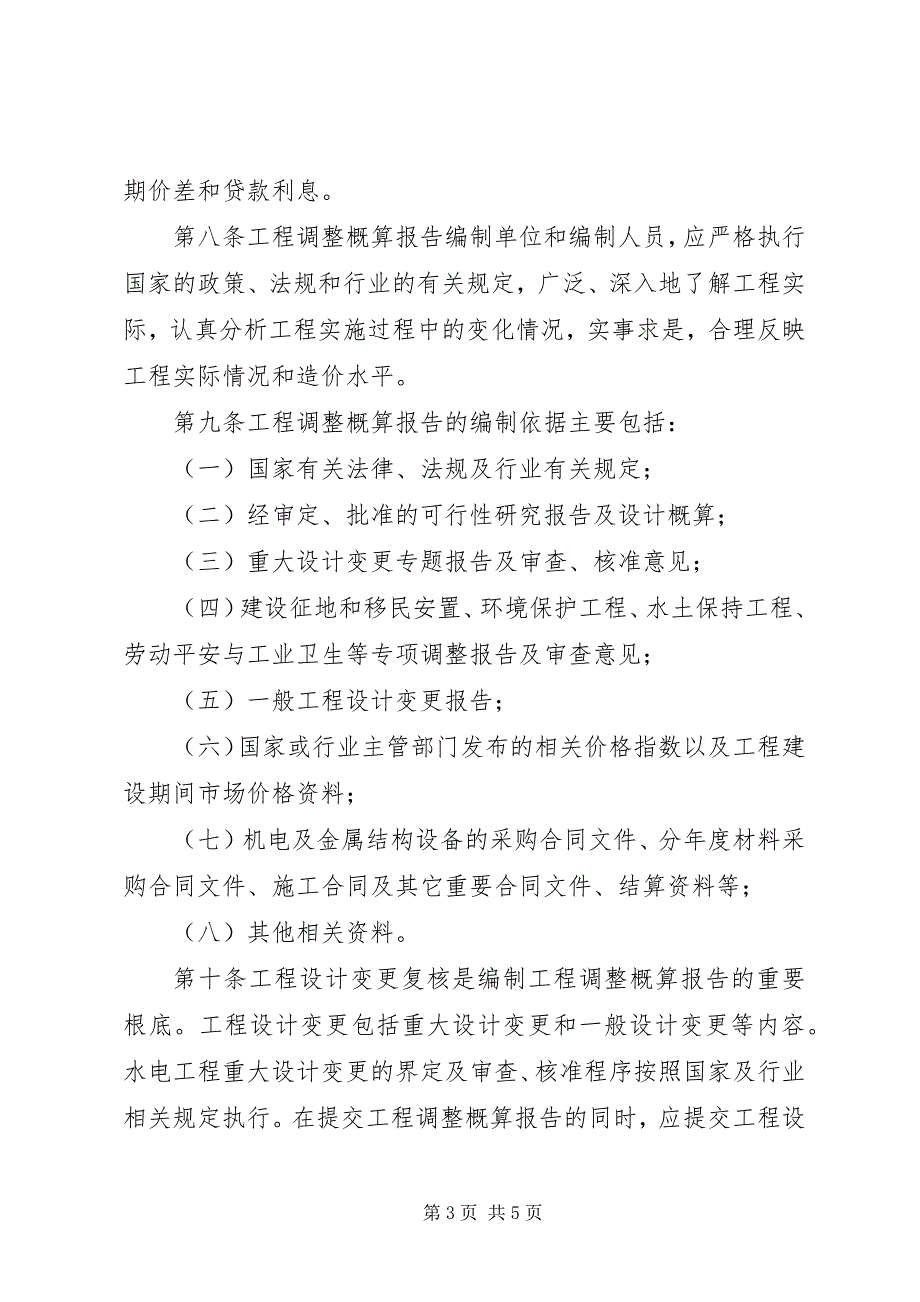 期价差和贷款利息。
第八条工程调整概算报告编制单位和编制人员，应严格执行
国家的政策、法规和行业的有关规定，广泛、深入地了解工程实
际，认真分析工程实施过程中的变化情况，实事求是，合理反映
工程实际情况和造价水平。
第九条工程调整概算报告的编制依据主要包括：
（一）国家有关法律、法规及行业有关规定；
（二）经审定、批准的可行性研究报告及设计概算；
（三）重大设计变更专题报告及审查、核准意见；
（四）建设征地和移民安置、环境保护工程、水土保持工程、
劳动平安与工业卫生等专项调整报告及审查意见；
（五）一般工程设计变更报告；
（六）国家或行业主管部门发布的相关价格指数以及工程建
设期间市场价格资料；
（七）机电及金属结构设备的采购合同文件、分年度材料采
购合同文件、施工合同及其它重要合同文件、结算资料等；
（八）其他相关资料。
第十条工程设计变更复核是编制工程调整概算报告的重要
根底。工程设计变更包括重大设计变更和一般设计变更等内容。
水电工程重大设计变更的界定及审查、核准程序按照国家及行业
相关规定执行。在提交工程调整概算报告的同时，应提交工程设
第 3 页 共 5 页